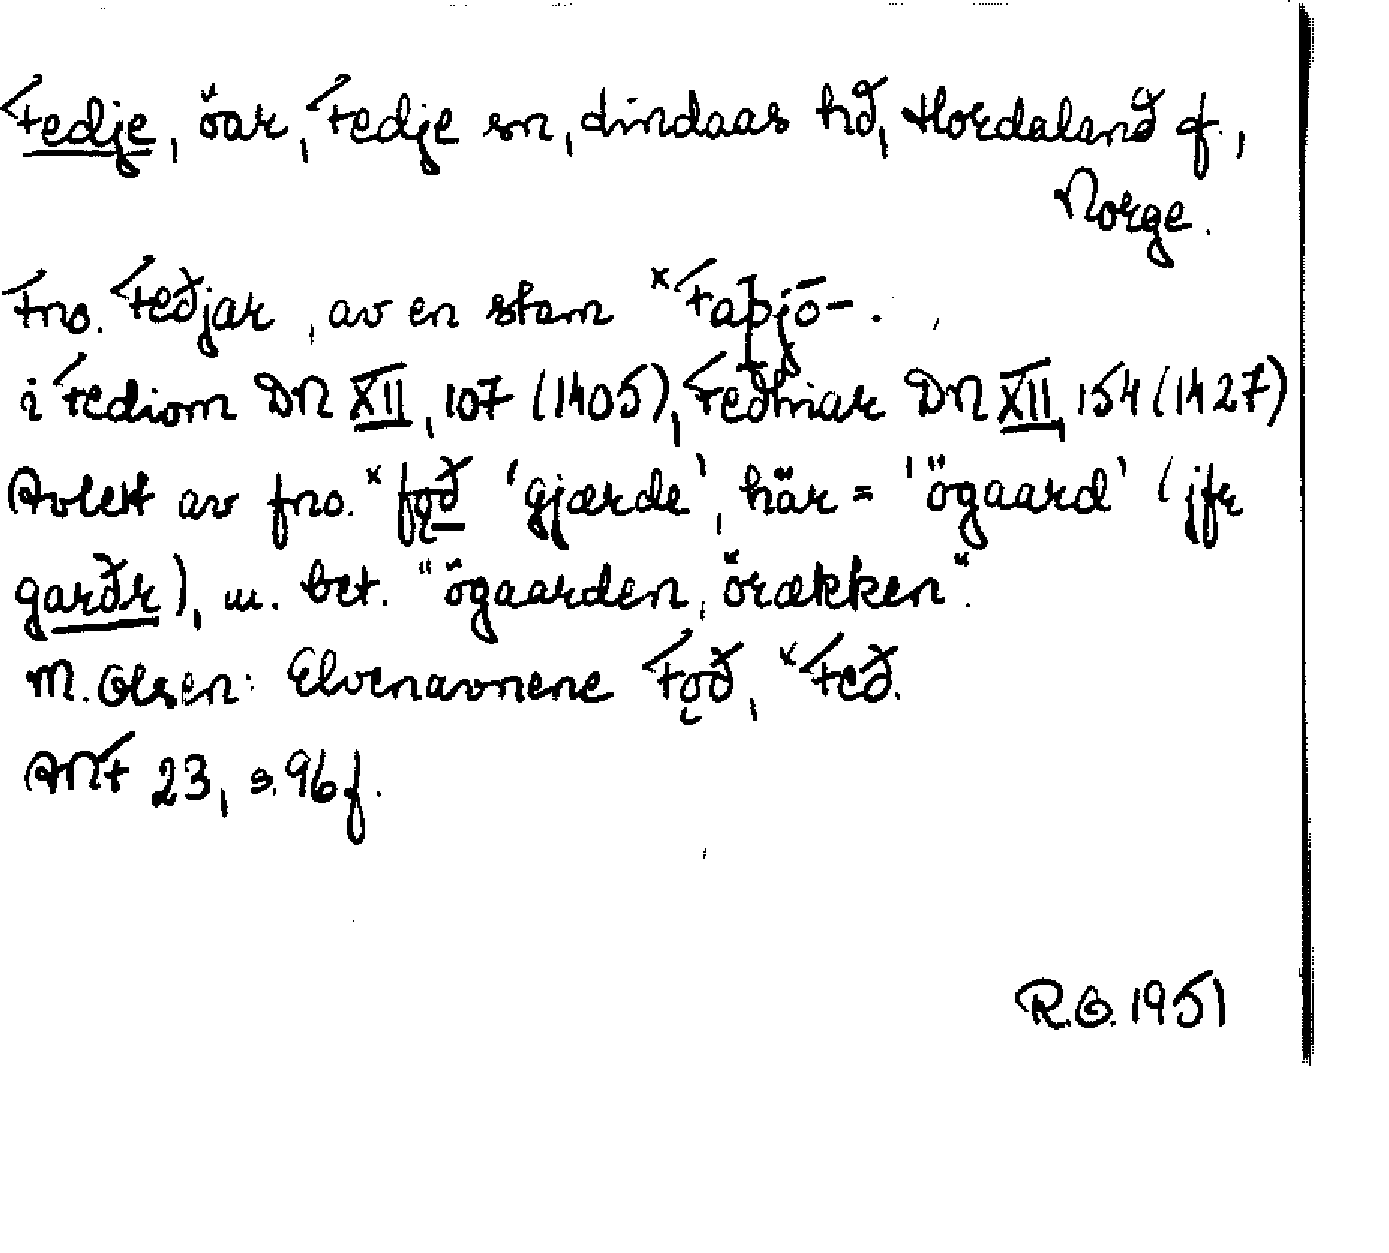 Fedje, öar, Fedje sn, Lindaas hð, Hordaland f.,
Norge.
Fno. Feðjar, av en stam *Faþjō-.
i Fediom DN XII, 107 (1405), Fedhiar DN XII, 154 (1427)
Avlett av fno. *fǫð 'gjærde', här = 'ögaard' (jfr
garðr), u. bet. "ögaarden, örækken".
M. Olsen: Elvenavnene Fǫð, *Feð.
ANF 23, s. 96 f.
R.O. 1951